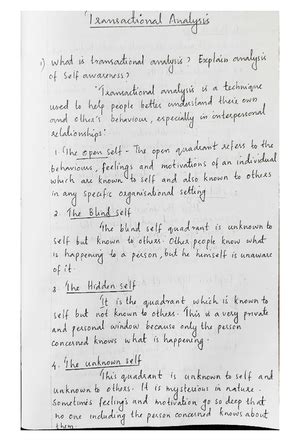 Transactional Analysis
1) What is transactional analysis? Explain analysis
of Self awareness?
Transactional analysis is a technique
used to help people better understand their own
and other's behaviour, especially in interpersonal
relationships:
1. The open self - The open quadrant refers to the
behaviours, feelings and motivations of an individual
which are known to self and also known to others
in any specific organisational setting.
2. The Blind self
The blind self quadrant is unknown to
self but known to others. Other people know what
is happening to a person, but he himself is unaware
of it.
3. The Hidden self
It is the quadrant which is known to
self but not known to others. This is a very private
and personal window because only the person
concerned knows what is happening.
4. The unknown self
This quadrant is unknown to self and
unknown to others. It is mysterious in nature.
Sometimes feelings and motivation go so deep that
no one including the person concerned knows about
them.